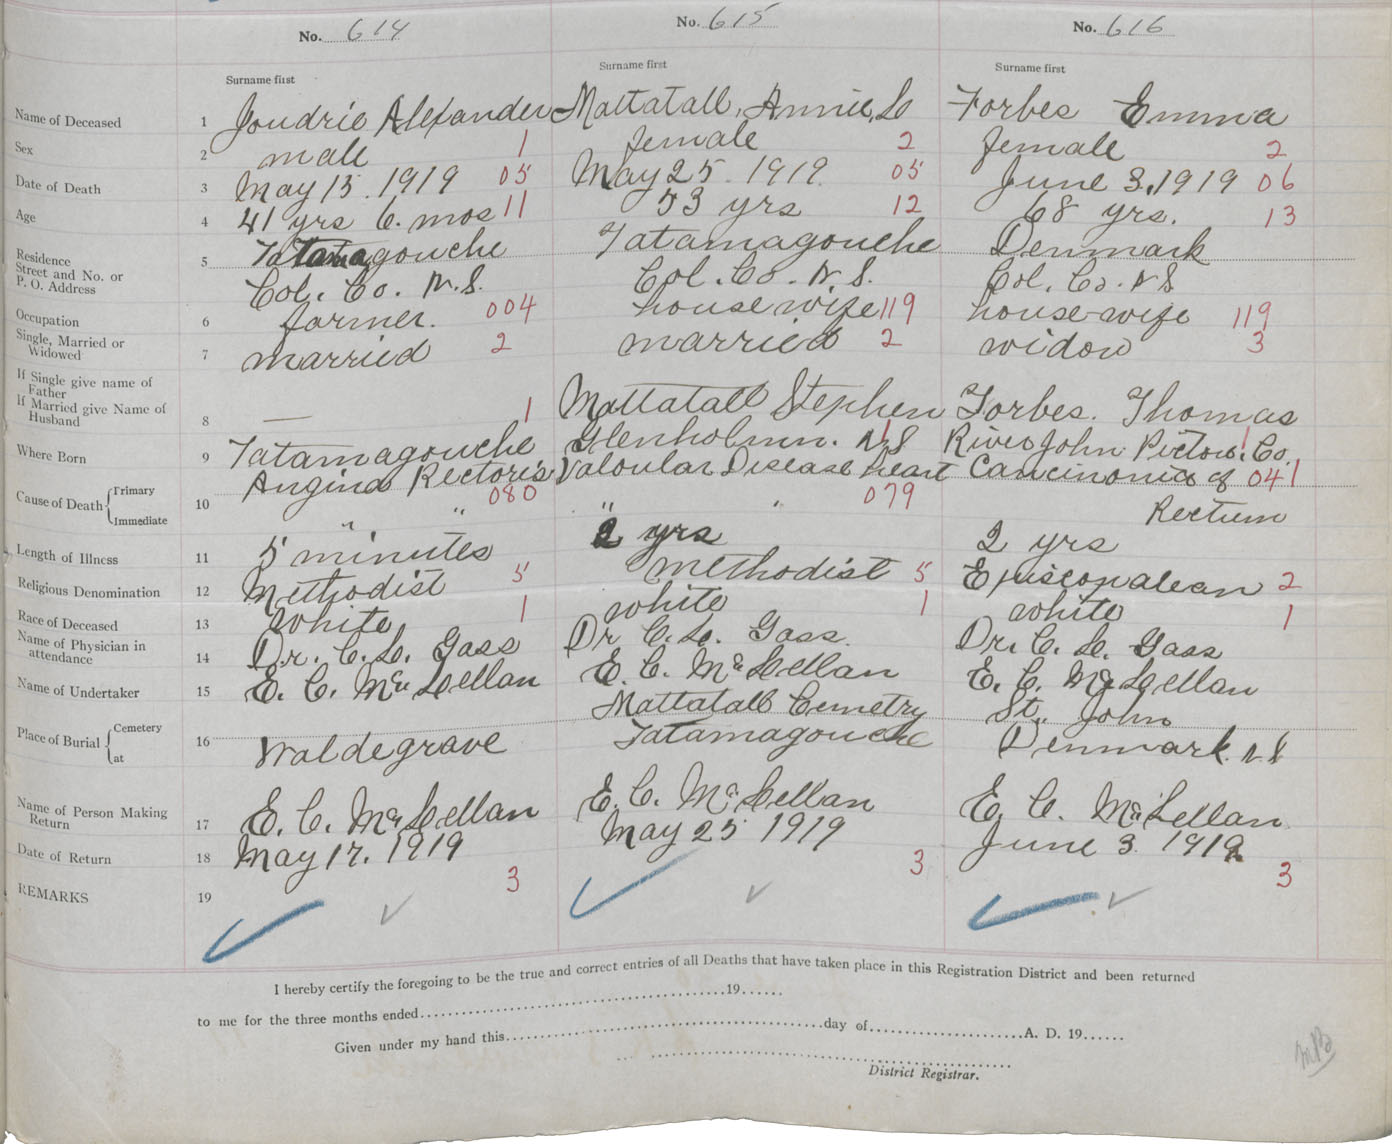 No. 614 No. 615 No. 616
Surname first Surname first Surname first
Name of Deceased 1 Joudrie Alexander Mattatall, Annie, L Forbes Emma
Sex 2 male 1 female 2 female 2
Date of Death 3 May 15. 1919 05 May 25. 1919. 05 June 3, 1919 06
Age 4 41 yrs 6. mos 11 53 yrs 12 68 yrs. 13
Residence
Street and No. or
P. O. Address 5 Tatamagouche Tatamagouche Denmark
Col. Co. N.S. Col. Co. N.S. Col. Co. N S
Occupation 6 farmer. 004 housewife 119 housewife 119
Single, Married or
Widowed 7 married 2 married 2 widow 3
If Single give name of
Father
If Married give Name of
Husband 8 — 1 Mattatall Stephen Forbes. Thomas
Where Born 9 Tatamagouche Glenholmn. N S 1 River John Pictou. Co. 1
Cause of Death { Primary Angina Pectoris 080 Valvular Disease heart 079 Carcinoma of 041
Immediate 10 " " " " Rectum
Length of Illness 11 5 minutes 2 yrs 2 yrs
Religious Denomination 12 Methodist 5 methodist 5 Episcopalean 2
Race of Deceased 13 White 1 white 1 white 1
Name of Physician in
attendance 14 Dr. C. L. Gass Dr C. L. Gass. Dr. C. L. Gass
Name of Undertaker 15 E. C. McLellan E. C. McLellan E. C. McLellan
Place of Burial { Cemetery Mattatall Cemetry St. John
at 16 Waldegrave Tatamagouche Denmark. N S
Name of Person Making
Return 17 E. C. McLellan E. C. McLellan E. C. McLellan
Date of Return 18 May 17. 1919 May 25 1919 June 3. 1919
REMARKS 19 3 3 3
I hereby certify the foregoing to be the true and correct entries of all Deaths that have taken place in this Registration District and been returned
to me for the three months ended 19
Given under my hand this day of A. D. 19
District Registrar.